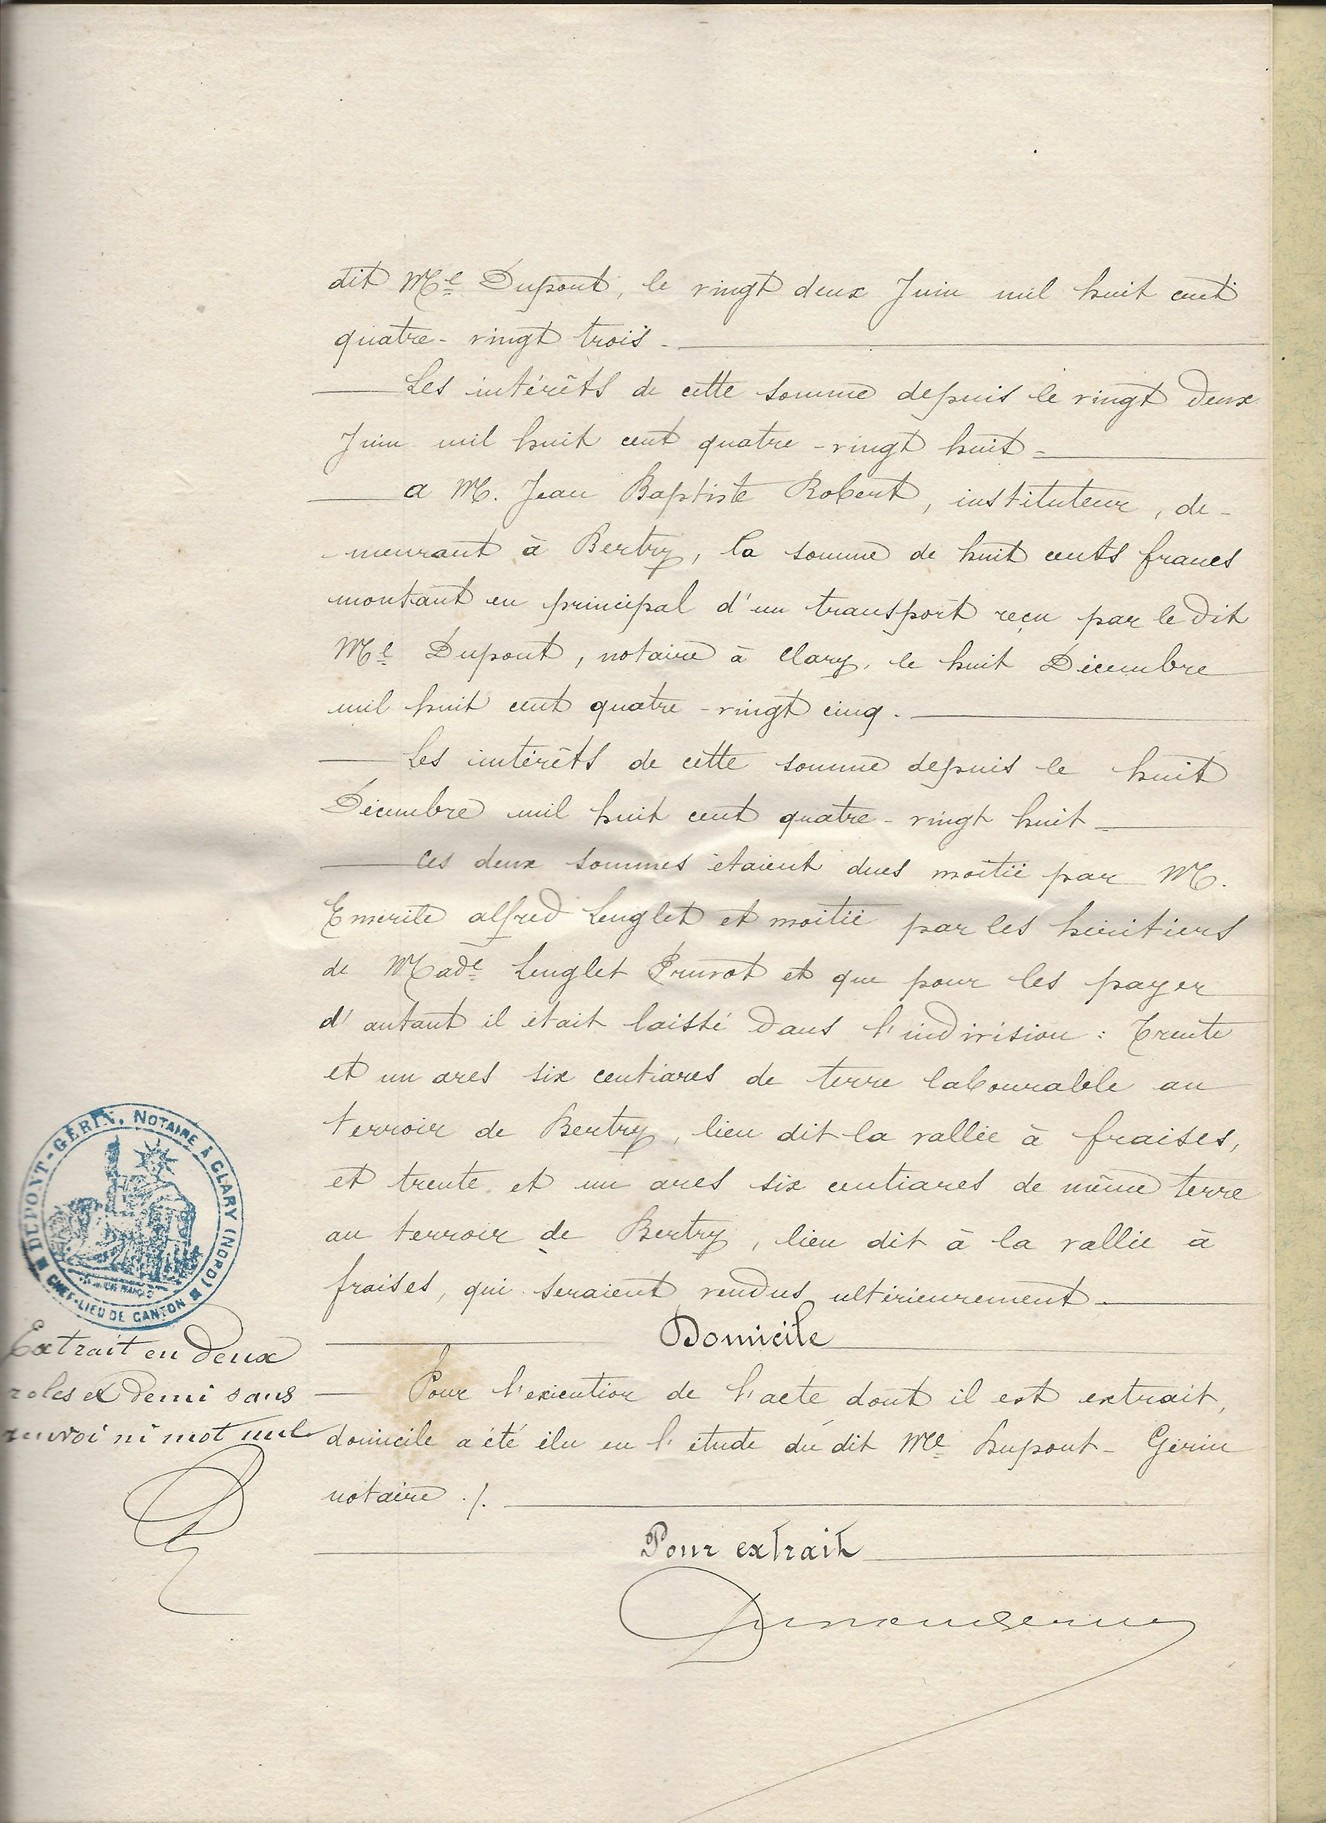 dit Me Dupont, le vingt deux Juin mil huit cent
quatre-vingt trois.
Les intérêts de cette somme depuis le vingt deux
Juin mil huit cent quatre-vingt huit
a M. Jean Baptiste Robert, instituteur, de-
meurant à Bertry, la somme de huit cents francs
montant en principal d'un transport reçu par le dit
Me Dupont, notaire à Clary, le huit Décembre
mil huit cent quatre-vingt cinq.
Les intérêts de cette somme depuis le huit
Décembre mil huit cent quatre-vingt huit
Ces deux sommes étaient dues moitié par M.
Emerite alfred Lenglet et moitié par les héritiers
de Made Lenglet Pruvot et que pour les payer
d'autant il était laissé dans l'indivision : Trente
et un ares six centiares de terre labourable au
terroir de Bertry, lieu dit la vallée à fraises,
et trente et un ares six centiares de même terre
au terroir de Bertry, lieu dit à la vallée à
fraises, qui seraient vendus ultérieurement
Domicile
Pour l'exécution de l'acte dont il est extrait,
domicile a été élu en l'étude du dit Me Dupont-Gérin
notaire ./.
Pour extrait
DUPONT-GÉRIN, NOTAIRE À CLARY (NORD)
CHEF-LIEU DE CANTON
Extrait en deux
roles et demi sans
renvoi ni mot nul